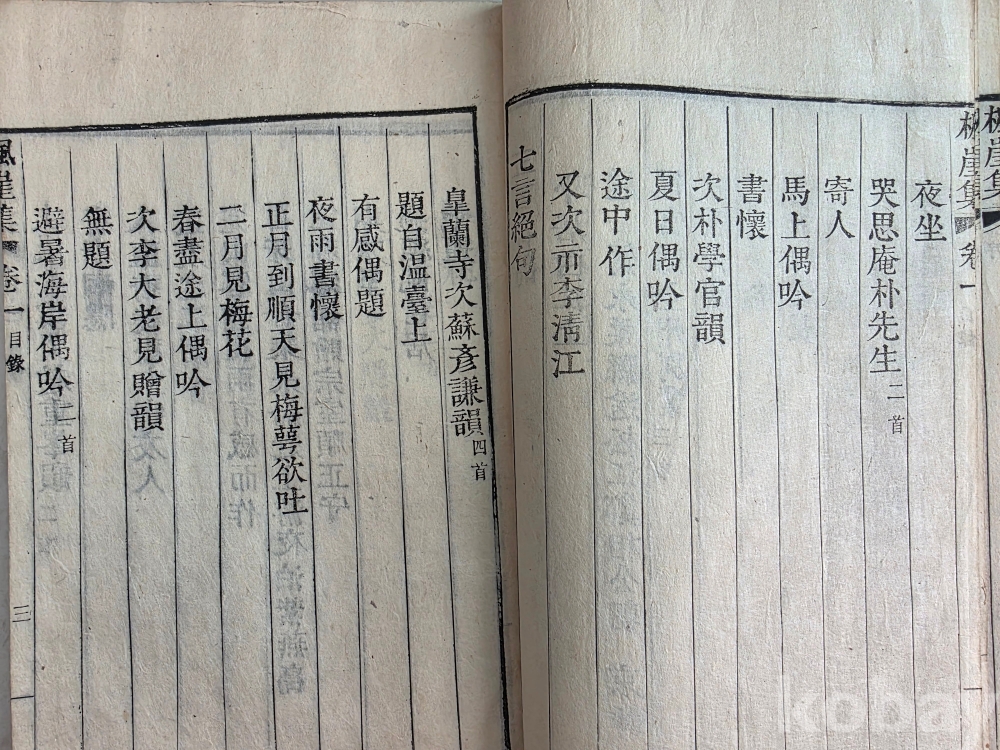 崖集
崖集 卷一
夜坐
哭思庵朴先生 二首
寄人
馬上偶吟
書懷
次朴學官韻
夏日偶吟
途中作
又次示李淸江
七言絕句
皐蘭寺次蘇彦謙韻 四首
題自溫臺上
有感偶題
夜雨書懷
正月到順天見梅萼欲吐
二月見梅花
春盡途上偶吟
次李大老見贈韻
無題
避暑海岸偶吟 二首
楓崖集 卷一 目錄 三
koba